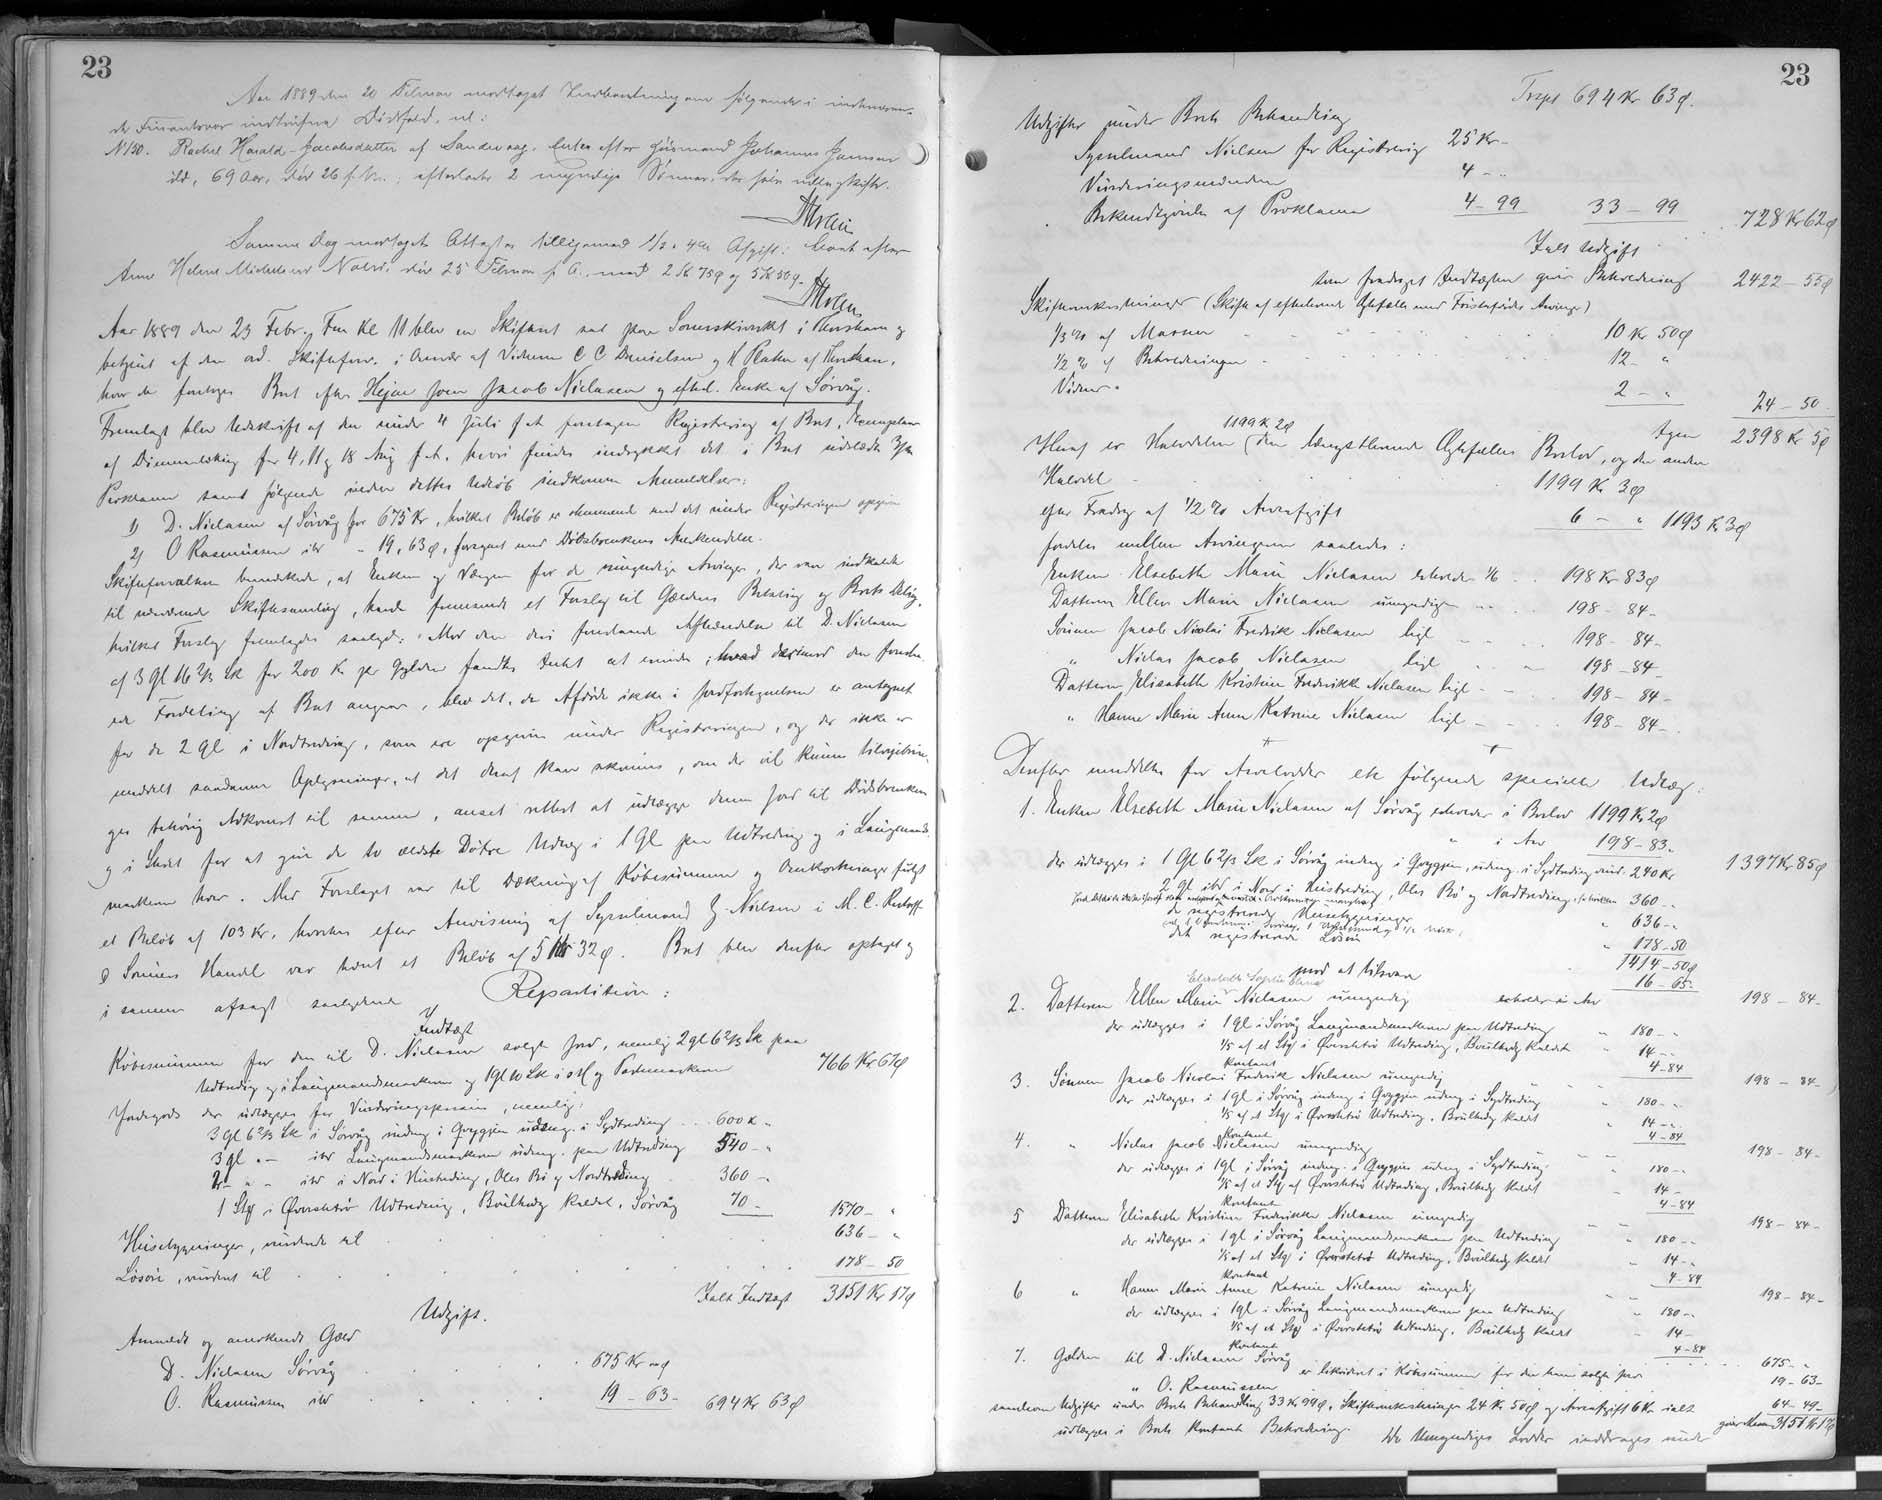 23
Aar 1889 den 20 Februar modtaget Indberetning om følgende i indeværen-
de Finantsaar indtrufne Dødsfald, nl:
N 150. Rachel Harald-Jacobsdatter af Sandevaag, Enke efter Huusmand Johannes Jansen
ibd, 69 Aar, død 26 f. M.; efterlader 2 myndige Sønner, der selv skifte.
Samme Dag modtaget Attester tilligemed 1/2 Afgift: Boet efter
Anne Helene Michelsen Nolsø, død 25 Februar f. A., med 2 K 75 ø og 5 K 50 ø.
Aar 1889 den 23 Febr. Fm Kl 11 blev en Skifteret sat paa Sorenskriveriet i Thorshavn og
betjent af den ord. Skifteforv. i Overvær af Vidnerne C C Danielsen og H af Thorshavn,
hvor da foretoges Boet efter Hejne Joen Jacob Niclasen og efterl. Enke af Sørvåg.
Fremlagt blev Udskrift af den under 4 Juli f A foretagen Registrering af Boet, Exemplarer
af Dimmalætting for 4, 11 og 18 Aug f. A., hvori findes indrykket det i Boet udstedte
Proklama samt følgende inden dettes Udløb indkomne Anmeldelser:
1) D. Niclasen af Sørvåg for 675 Kr, hvilket Beløb er overensst. med det under Registreringen opgivne
2) O Rasmussen ibd - 19, 63 ø, forsynet med Dødsboenkens Anerkendelse.
Skifteforvalteren bemærkede, at Enken og Værgen for de umyndige Arvinger, der vare indkaldte
til nærværende Skiftesamling, havde fremsendt et Forslag til Gældens Betaling og Boets Deling,
hvilket Forslag fremlagdes saalyd: Mod den deri foreslaaede Afhændelse til D. Niclasen
af 3 Gl 16 2/3 Sk for 200 Kr per Gylden fandtes Intet at erindre; hvad derimod den foreslaa-
ede Fordeling af Boet angaar, blev det, da Afdøde ikke i Jordfortegnelsen er antegnet
for de 2 Gl i Nordtreding, som ere opgivne under Registreringen, og der ikke er
meddelt saadanne Oplysninger, at det deraf kan skønnes, om der vil kunne tilvejebrin-
ges behørig Adkomst til samme, anset rettest at udlægge denne Jord til Dødsboenken
og i Stedet for at give de to ældste Døtre Udlæg i 1 Gl paa Udtreding og i Laugmands-
markerne hver. Med Forslaget var til Dækning af Købesummen og Omkostninger fulgt
et Beløb af 103 Kr, hvorhos efter Anvisning af Sysselmand Z. Nielsen i M. C. Restorff
& Sønners Handel var hævet et Beløb af 5 Kr 32 ø. Boet blev derefter optaget og
i samme afsagt saalydende Repartition:
Indtægt
Købesummen for den til D. Niclasen solgte Jord, nemlig 2 gl 6 2/3 Sk paa
Udtreding og i Laugmandsmarkerne og 1 Gl 10 Sk i og Pastemarkerne 766 Kr 67 ø
Jordegods der udlægges for Vurderingsprisen, nemlig:
3 gl 6 2/3 Sk i Sørvåg indeng i Gryggjen udeng i Sydtreding 600 K "
3 gl " - ibd Laugmandsmarkerne udeng. paa Udtreding 540 - "
2 - " - ibd i Nord i Hustreding, Oles Bø og Nordtreding 360 -
1 Sty i Øvrstetrø Udtreding, Bøulhedg kaldet, Sørvåg 70 - 1570 - "
Husebygninger, vurderede til 636 - "
Løsøre, vurderet til 178 - 50
Ialt Indtægt 3151 Kr 17 ø
Udgift.
Anmeldt og anerkendt Gæld
D. Niclasen Sørvåg 675 Kr " ø
O. Rasmussen ibd 19 - 63 - 694 Kr 63 ø
23
Trspt 694 Kr 63 ø.
Udgifter under Boets Behandling
Sysselmand Nielsen for Registrering 25 Kr -
Vurderingsmændene 4 - "
Bekendtgørelse af Proklama 4 - 99 33 - 99
Ialt Udgift 728 Kr 62 ø
som fradraget Indtægten giver Beholdning 2422 - 55 ø
Skifteomkostninger (Skifte af efterlevende Ægtefælle med Førstafdødes Arvinger)
1/3 % af Massen 10 Kr 50 ø
1/2 % af Beholdningen 12 - "
Vidner 2 - " 24 - 50
Igen 2398 Kr 5 ø
1199 K 2 ø
Heraf er Halvdelen den længstlevende Ægtefælles Boslod, og den anden
Halvdel 1199 Kr 3 ø
efter Fradrag af 1/2 % Arveafgift 6 - " 1193 K 3 ø
fordeles mellem Arvingerne saaledes:
Enken Elsebeth Marie Niclasen erholder 1/6 198 Kr 83 ø
Datteren Ellen Marie Niclasen umyndig 198 - 84 -
Sønnen Jacob Nicolai Fredrik Niclasen ligl 198 - 84 -
" Niclas Jacob Niclasen ligl 198 - 84 -
Datteren Elisabeth Kristine Frederikke Niclasen ligl 198 - 84 -
" Hanne Marie Anne Katrine Niclasen ligl 198 - 84 -
Derefter meddeles for Arvelodder etc følgende specielle Udlæg:
1. Enken Elsebeth Marie Niclasen af Sørvåg erholder i Boslod 1199 Kr 2 ø
" i Arv 198 - 83 " 1397 Kr 85 ø
der udlægges i 1 Gl 6 2/3 Sk i Sørvåg indeng i Gryggjen, udeng. i Sydtreding vurd. 240 Kr
2 Gl ibd i Nord i Hustreding, Oles Bø og Nordtreding 360 - "
de registrerede Husebygninger " 636 - "
det registrerede Løsøre " 178 - 50
1414 - 50 ø
mod at tilsvare 16 - 65
Elsebeth Sophie Elena
2. Datteren Ellen Marie Niclasen umyndig erholder i Arv 198 - 84 -
der udlægges i 1 Gl i Sørvåg Laugmandsmarkerne paa Udtreding " 180 - "
1/5 af et Sty i Øvrstetrø Udtreding, Bøulhedg kaldet " 14 - "
Kontant 4 - 84
3. Sønnen Jacob Nicolai Fredrik Niclasen umyndig 198 - 84 -
der udlægges i 1 gl i Sørvåg indeng i Gryggjen udeng i Sydtreding " 180 - "
1/5 af et Sty i Øvrstetrø Udtreding, Bøulhedg kaldet " 14 - "
Kontant 4 - 84
4. " Niclas Jacob Niclasen umyndig 198 - 84 -
der udlægges i 1 gl i Sørvåg indeng i Gryggjen udeng i Sydtreding " 180 - "
1/5 af et Sty af Øvrstetrø Udtreding, Bøulhedg kaldet 14 -
Kontant 4 - 84
5 Datteren Elisabeth Kristine Frederikke Niclasen umyndig 198 - 84 -
der udlægges i 1 gl i Sørvåg Laugmandsmarkerne paa Udtreding " 180 - "
1/5 af et Sty i Øvrstetrø Udtreding, Bøulhedg kaldet " 14 - "
Kontant 4 - 84
6 " Hanne Marie Anne Katrine Niclasen umyndig 198 - 84 -
der udlægges i 1 gl i Sørvåg Laugmandsmarkerne paa Udtreding " 180 - "
1/5 af et Sty i Øvrstetrø Udtreding, Bøulhedg kaldet " 14 -
Kontant 4 - 84
7. Gælden til D. Niclasen Sørvåg er likvideret i Købesummen for den ham solgte Jord 675 - "
" O. Rasmussen 19 - 63 -
samt Udgifter under Boets Behandling 33 K 99 ø, Skifteomkostninger 24 K 50 ø og Arveafgift 6 Kr ialt 64 - 49 -
udlægges i Boets kontante Beholdning. giver Massen 3151 Kr 17 ø
De Umyndiges Lodder inddrages under